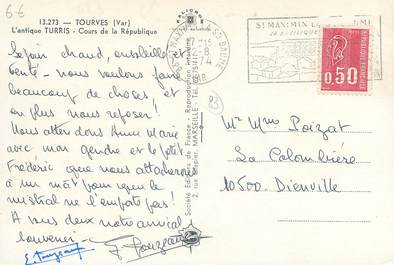 6€
13.273 — TOURVES (Var)
L'antique TURRIS - Cours de la République
Le soin chaud, ensoleillé et
venté - nous voulons faire
beaucoup de choses, et
en plus nous reposer!
Nous attendons Anne Marie
avec mon gendre et le petit
Frédéric que nous attacherons
à un mât pour que le
mistral ne l'emporte pas!
A vous deux notre amical
souvenir -
Société Editions de France - Reproduction
2, rue MARSEILLE
ST MAXIMIN
LA BASILIQUE
VAR
0,50
POSTES
FRANCE
83
Mr Mme Poizat
La Colombière
10500 Dienville